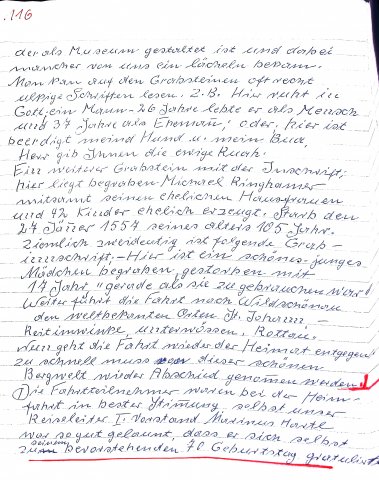 .116
der als Museum gestaltet ist und dabei
mancher von uns ein lächeln bekam.
Man kan auf den Grabsteinen oft recht
ulkige Schriften lesen. Z.B. Hier ruht in
Gott, ein Mann - 26 Jahre lebte er als Mensch
und 37 Jahre als Ehemann; oder, hier ist
beerdigt meind Hund u. mein Bua
Herr gib Innen die ewige Ruah.
Ein weiterer Grabstein mit der Inschrift;
hier liegt begraben Michael Ringhamer
mitsamt seinen ehelichen Hausfrauen
und 42 Kinder ehelich erzeugt, Starb den
27 Jäner 1554 seines alters 105 Jahr.
Ziemlich zweideutig ist folgende Grab-
innschrift, - Hier ist ein schönes junges
Mädchen begraben, gestorben mit
17 Jahr, "gerade als sie zu gebrauchen war"!
Weiter führt die Fahrt nach Wildschönau
den weltbekanten Orten St. Johann -
Reitimwinke, unterwössen, Rottau.
Nun geht die Fahrt wieder der Heimat entgegen
zu schnell muss dieser schönen
Bergwelt wieder Abschied genomen werden.
Die Fahrtteilnehmer waren bei der Heim-
fahrt in bester Stimung, selbst unser
Reiseleiter I. Vorstand Marinus Hartl
war so gut gelaunt, dass er sich selbst
zum seinem bevorstehenden 70 Geburtstag gratulierte